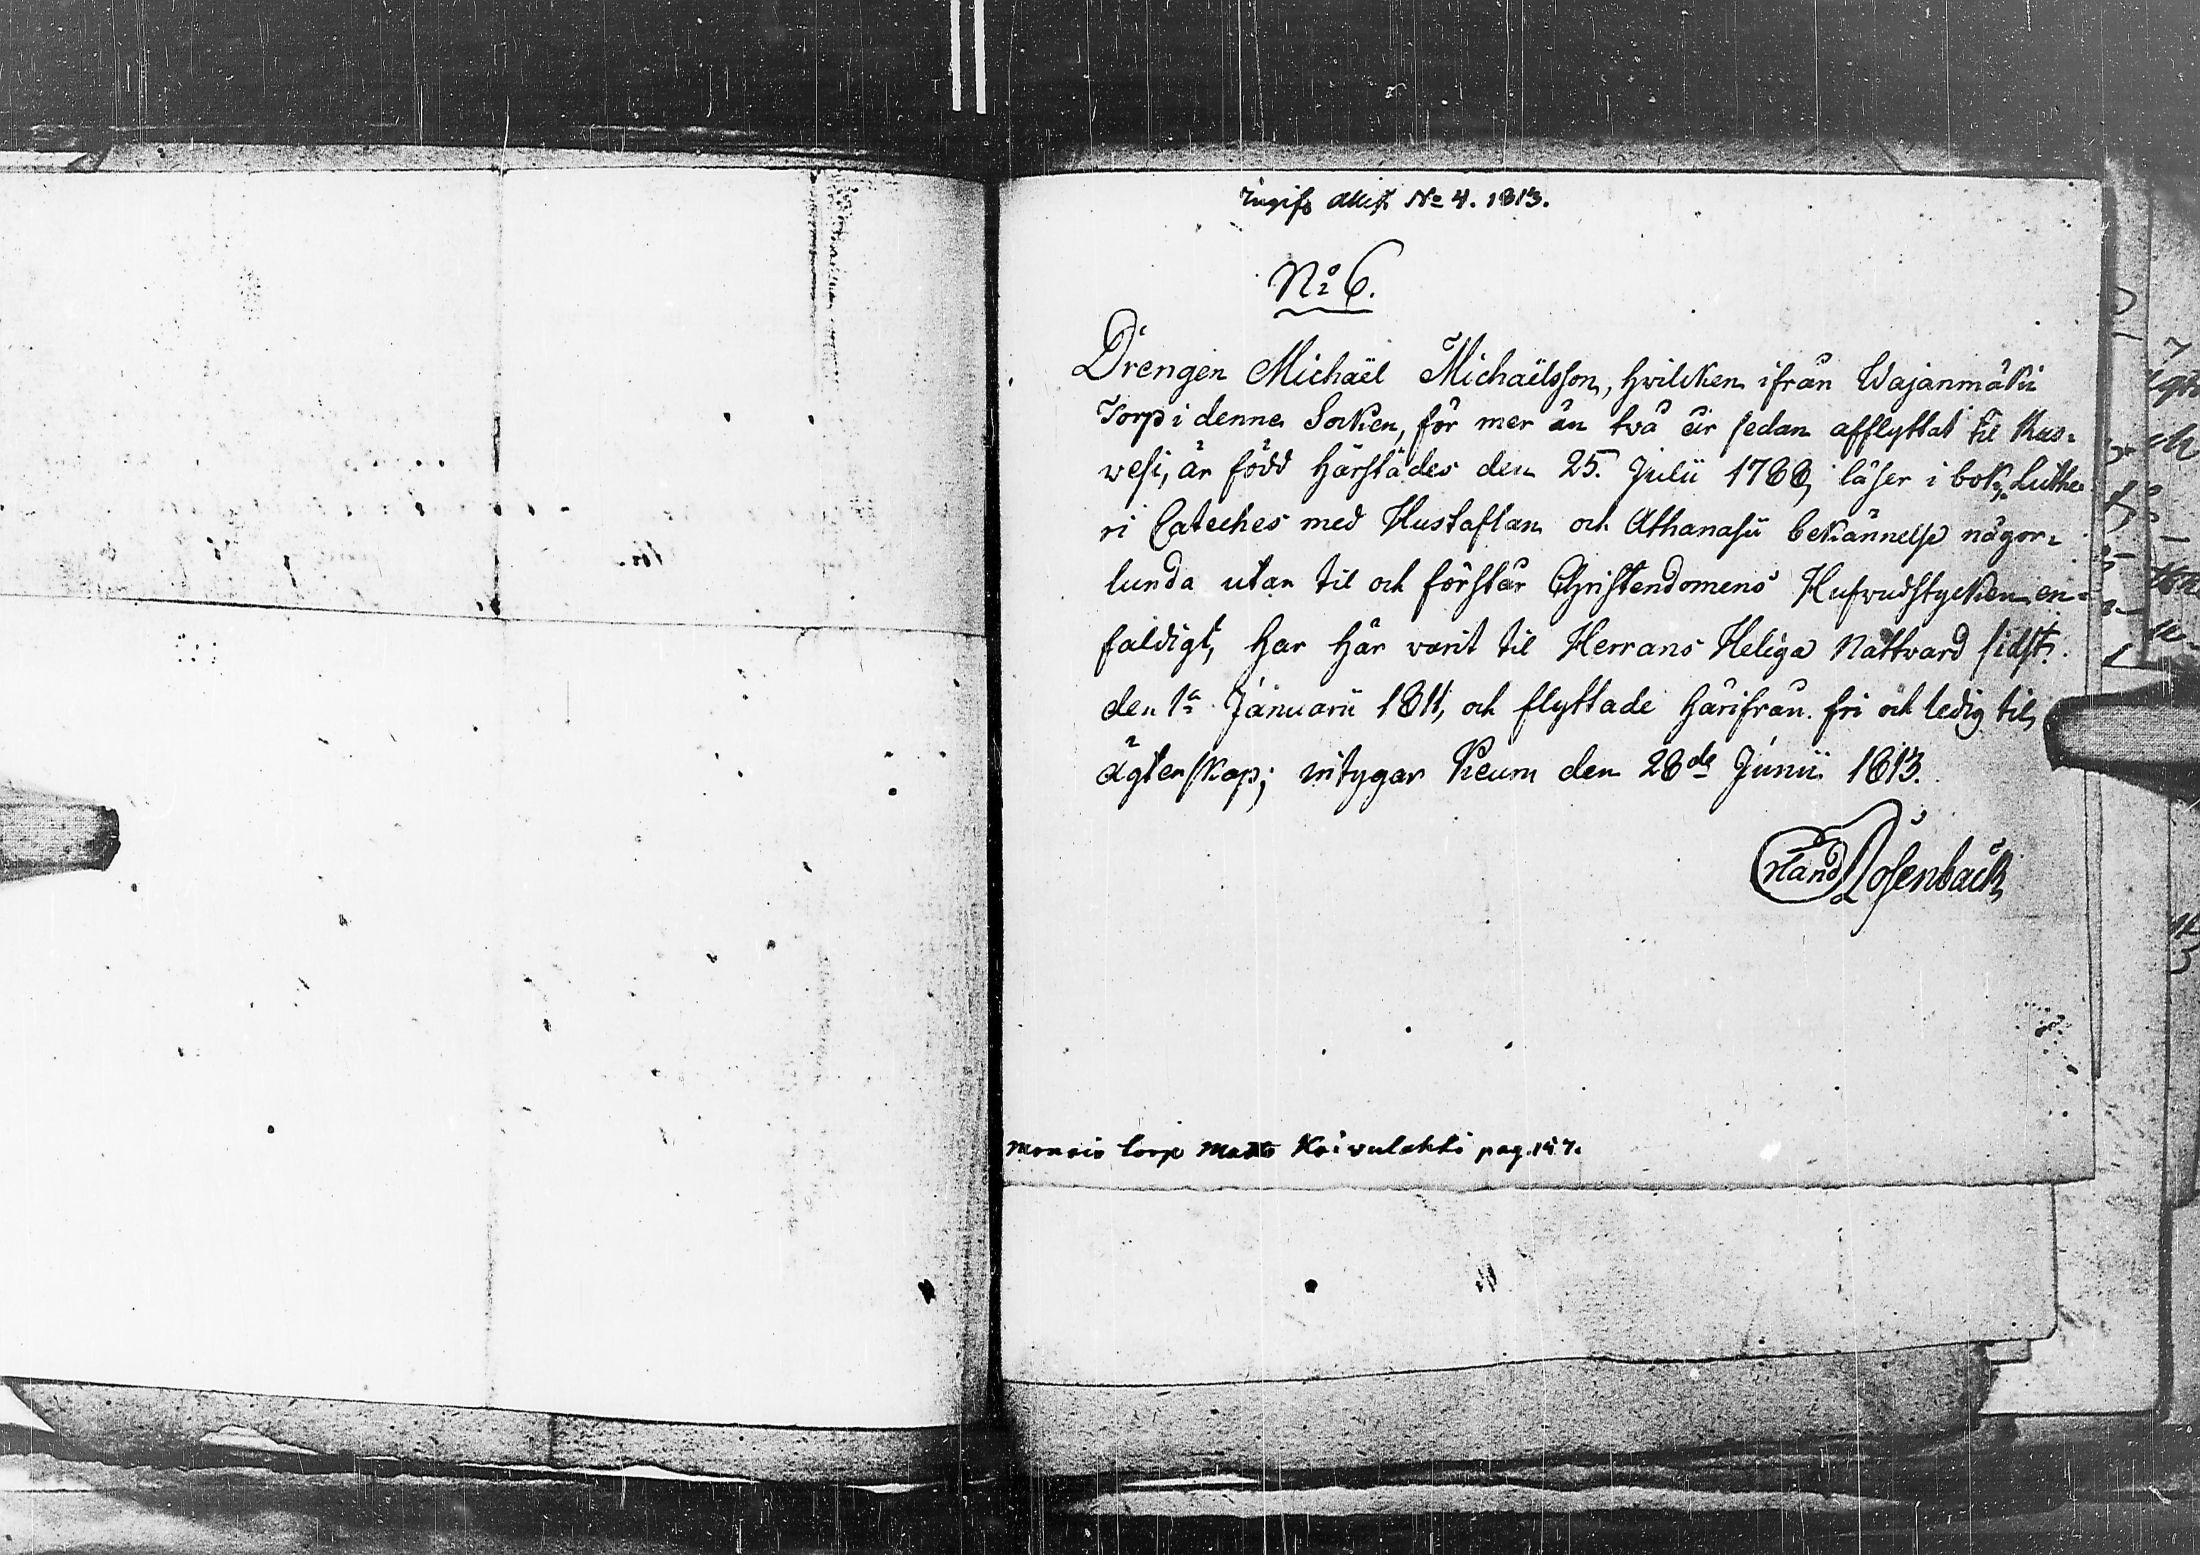 Attest No 4. 1813.
No 6.
Drengen Michaël Michaëlsson, hvilcken ifrån Wajanmäki
Torp i denne Socken, för mer än två år sedan afflyttat til Rus=
wesi, är född härstädes den 25. Julii 1788, läser i bok, Luthe
ri Cateches med Hustaflan och Athanasii bekännelse någor=
lunda utan til och förstår Christendomens Hufwudstycken en=
faldigt, har här varit til Herrans Heliga Nattvard sidst.
den 1a Januarii 1811, och flyttade härifrån fri och ledig til
ägtenskap; intygar Keuru den 28de Junii 1813.
Erland Rosenback
torp Matts Koivulahti pag. 157.